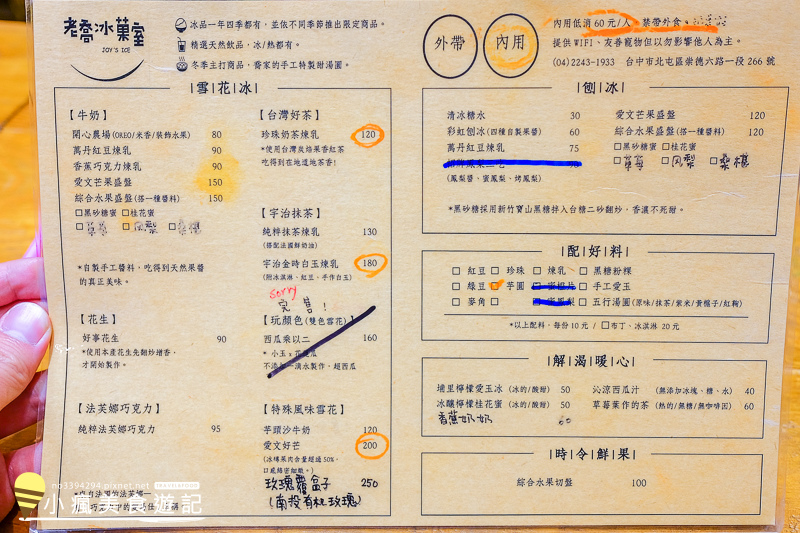 老喬冰菓室
JOY'S ICE
冰品一年四季都有，並依不同季節推出限定商品。
精選天然飲品，冰/熱都有。
冬季主打商品，喬家的手工特製甜湯圓。
外帶
內用
內用低消60元/人 禁帶外食。
提供WIFI、友善寵物但以勿影響他人為主。
(04)2243-1933 台中市北屯區崇德六路一段266號
|雪|花|冰|
【牛奶】
開心農場(OREO/米香/裝飾水果) 80
萬丹紅豆煉乳 90
香蕉巧克力煉乳 90
愛文芒果盛盤 150
綜合水果盛盤(搭一種醬料) 150
□黑砂糖蜜 □桂花蜜
□草莓 □鳳梨 □桑椹
*自製手工醬料，吃得到天然果醬
的真正美味。
【花生】
好事花生 90
*使用本產花生先翻炒增香，
才開始製作。
【法芙娜巧克力】
純粹法芙娜巧克力 95
【台灣好茶】
珍珠奶茶煉乳 120
*使用台灣炭焙果香紅茶
吃得到在地道地茶香！
【宇治抹茶】
純粹抹茶煉乳 130
(搭配法國鮮奶油)
宇治金時白玉煉乳 180
(附冰淇淋、紅豆、手作白玉)
sorry
完售！
【玩顏色(雙色雪花)】
西瓜乘以二 160
*小玉x花
不添加一滴水製作，超西瓜
【特殊風味雪花】
芋頭沙牛奶 120
愛文好芒 200
(冰磚果肉含量超過50%，
口感綿密細緻。)
玫瑰覆盆子 250
(南投有机玫瑰)
|刨|冰|
清冰糖水 30
彩虹刨冰(四種自製果醬) 60
萬丹紅豆煉乳 75
(鳳梨醬、蜜鳳梨、烤鳳梨)
愛文芒果盛盤 120
綜合水果盛盤(搭一種醬料) 120
□黑砂糖蜜 □桂花蜜
□草莓 □鳳梨 □桑椹
*黑砂糖採用新竹寶山黑糖拌入台糖二砂翻炒，香濃不死甜。
|配|好|料|
□紅豆 □珍珠 □煉乳 □黑糖粉粿
□綠豆 □芋圓 □手工愛玉
□麥角 □五行湯圓(原味/抹茶/紫米/黃梔子/紅麴)
*以上配料，每份10元 / □布丁、冰淇淋 20元
|解|渴|暖|心|
埔里檸檬愛玉冰 (冰的/酸甜) 50
冰釀檸檬桂花蜜 (冰的/酸甜) 50
香蕉奶奶 60
沁涼西瓜汁 (無添加冰塊、糖、水) 40
草莓葉作的茶 (熱的/無糖/無咖啡因) 60
|時|令|鮮|果|
綜合水果切盤 100
no3394294.pixnet.net
小瘋美食遊記